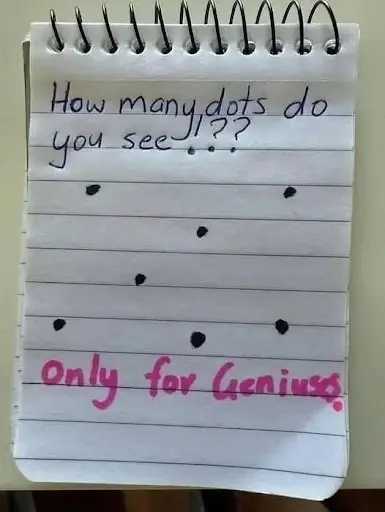 How many dots do
you see !??
Only for Geniuses.